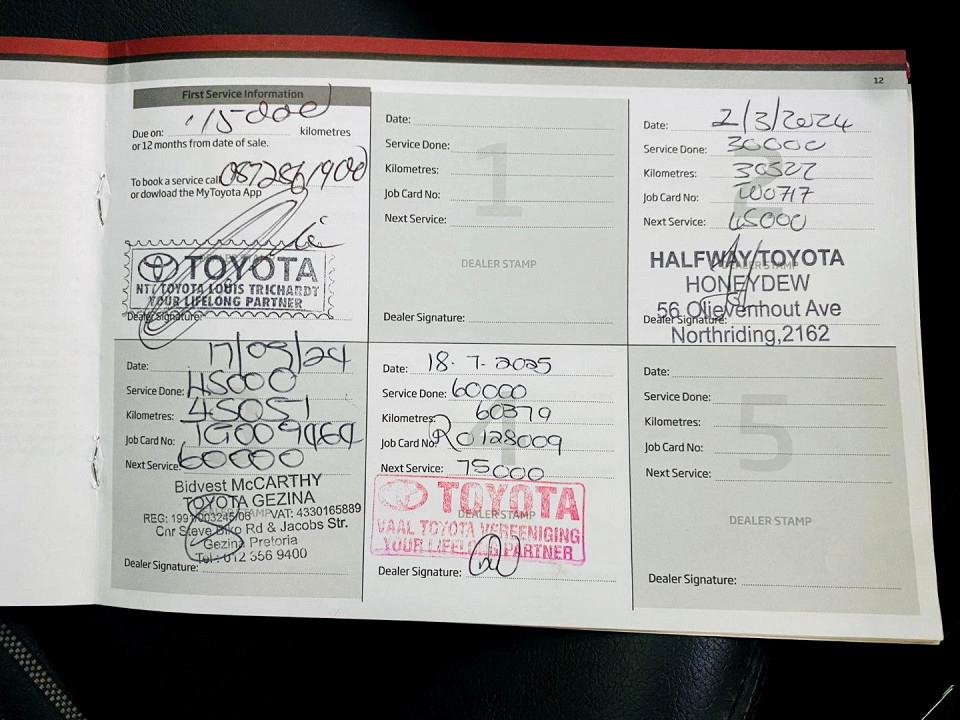 12
First Service Information
Due on: 15000 kilometres
or 12 months from date of sale.
To book a service call 0872861900
or dowload the MyToyota App
TOYOTA
NTT TOYOTA LOUIS TRICHARDT
YOUR LIFELONG PARTNER
Dealer Signature:
1
Date:
Service Done:
Kilometres:
Job Card No:
Next Service:
DEALER STAMP
Dealer Signature:
2
Date: 2/3/2024
Service Done: 30000
Kilometres: 30522
Job Card No: W0717
Next Service: 45000
DEALER STAMP
HALFWAY TOYOTA
HONEYDEW
56 Olievenhout Ave
Dealer Signature:
Northriding,2162
Date: 17/09/24
Service Done: 45000
Kilometres: 45051
Job Card No:
Next Service: 60000
Bidvest McCARTHY
TOYOTA GEZINA
REG: 1991/003245/06 VAT: 4330165889
Cnr Steve Biko Rd & Jacobs Str.
Gezina Pretoria
Tel: 012 356 9400
Dealer Signature:
4
Date: 18.7.2025
Service Done: 60000
Kilometres: 60379
Job Card No: RO128009
Next Service: 75000
DEALER STAMP
TOYOTA
VAAL TOYOTA VEREENIGING
YOUR LIFELONG PARTNER
Dealer Signature:
5
Date:
Service Done:
Kilometres:
Job Card No:
Next Service:
DEALER STAMP
Dealer Signature: